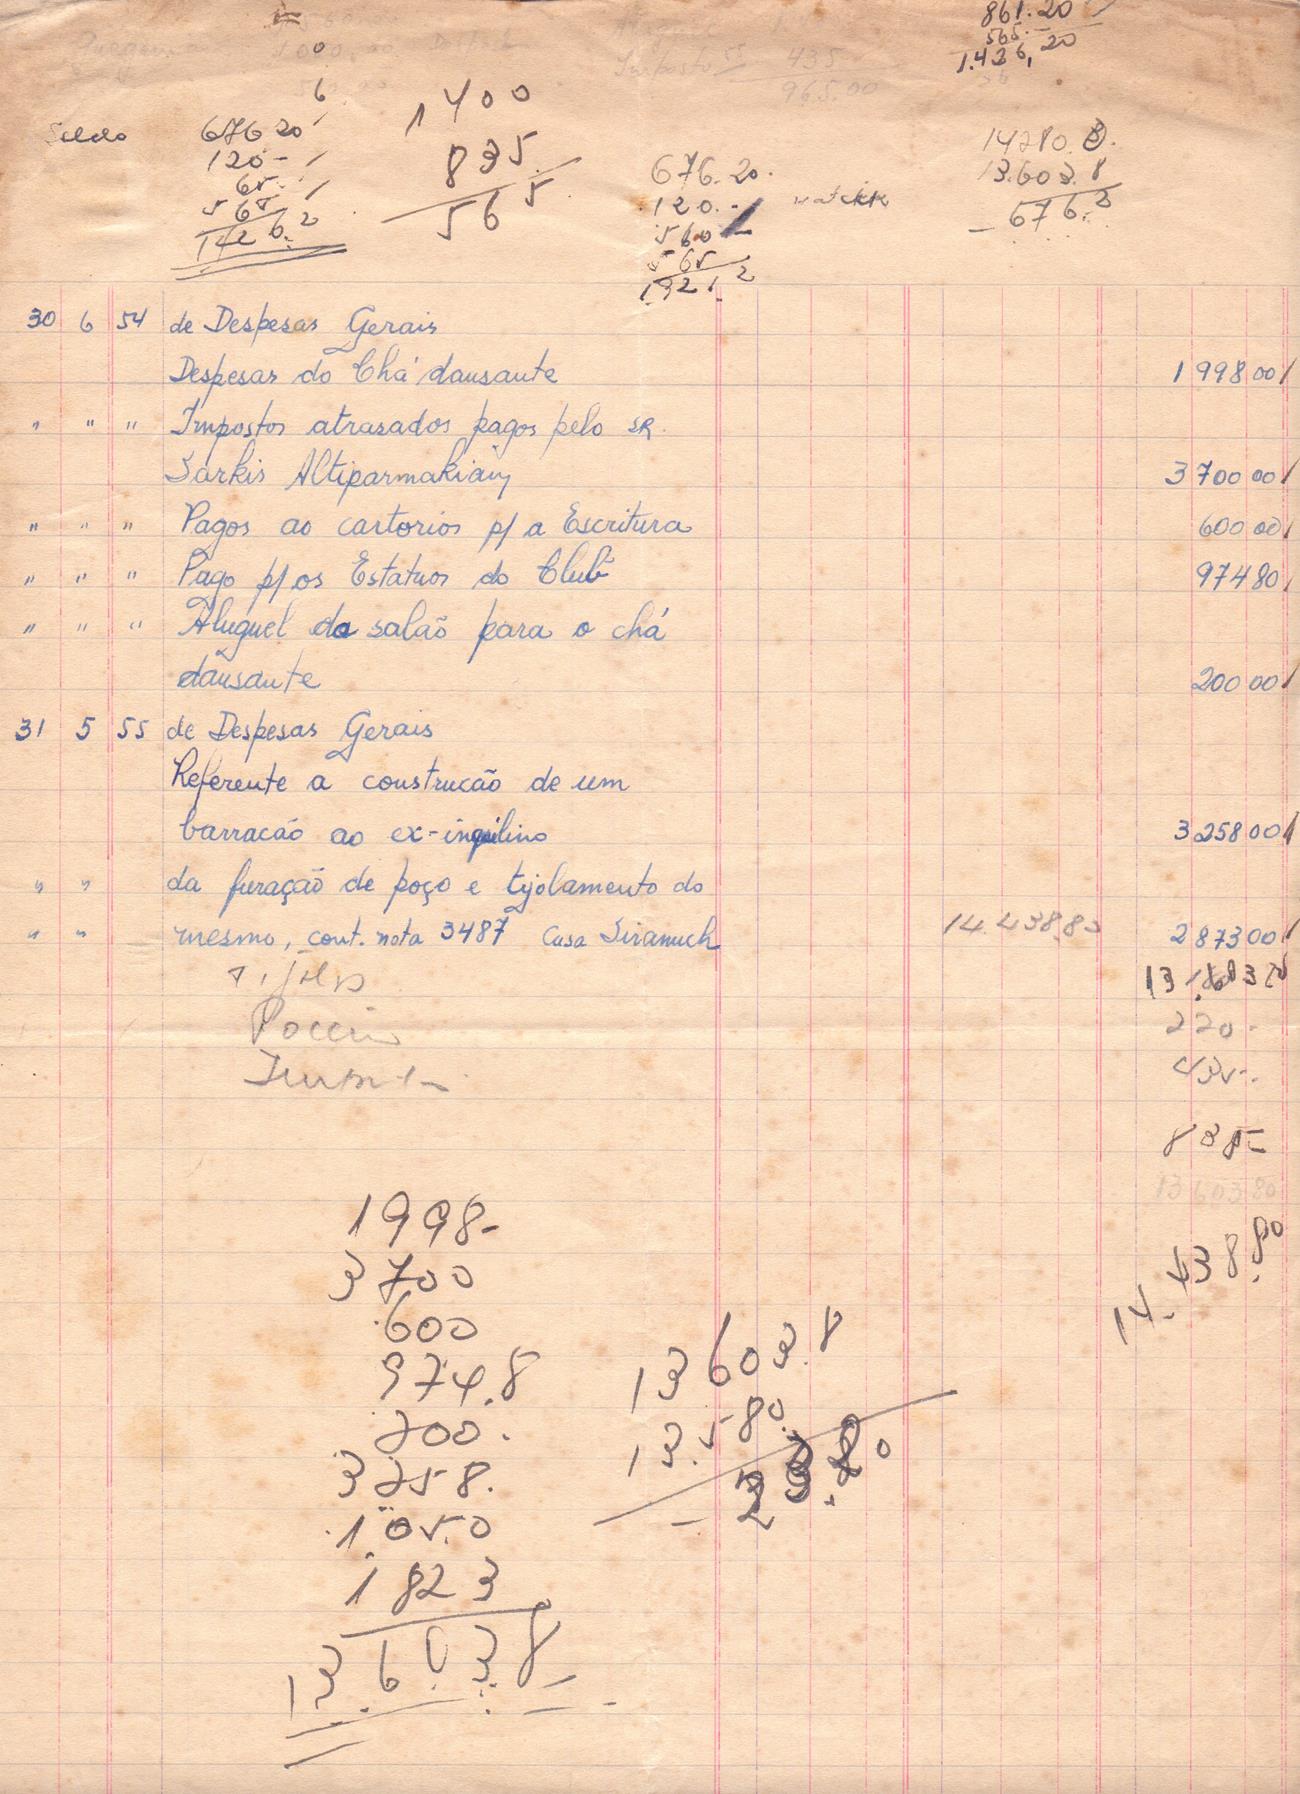 861.20
565.
1.426,20
Imposto 435
965.00
6
Saldo 676 20
120 -
65.
565
1426.2
1400
835.
565
676.20.
120.-
560 -
565
1921.2
14280.8.
13.603.8
- 676.2
30 6 54 de Despesas Gerais
Despesas do Chá dansante 1 998 00
" " " Impostos atrasados pagos pelo SR.
Sarkis Altiparmakian 3 700 00
" " " Pagos ao cartorios p/ a Escritura 600 00
" " " Pago p/ os Estatuos do Club 974 80
" " " Aluguel do salaõ para o chá
dansante 200 00
31 5 55 de Despesas Gerais
Referente a construcão de um
barracão ao ex-inquilino 3 258 00
" " da furação de poço e tijolamento do
" " mesmo, cont. nota 3487 Casa Siranuch 14.438.80 2 873 00
220 -
435-.
835-
13 603 80
14.438.80
1998-
3700
600
974.8
200.
3258.
1.050
1823
13.603.8
13603.8
13.580.
- 23.80